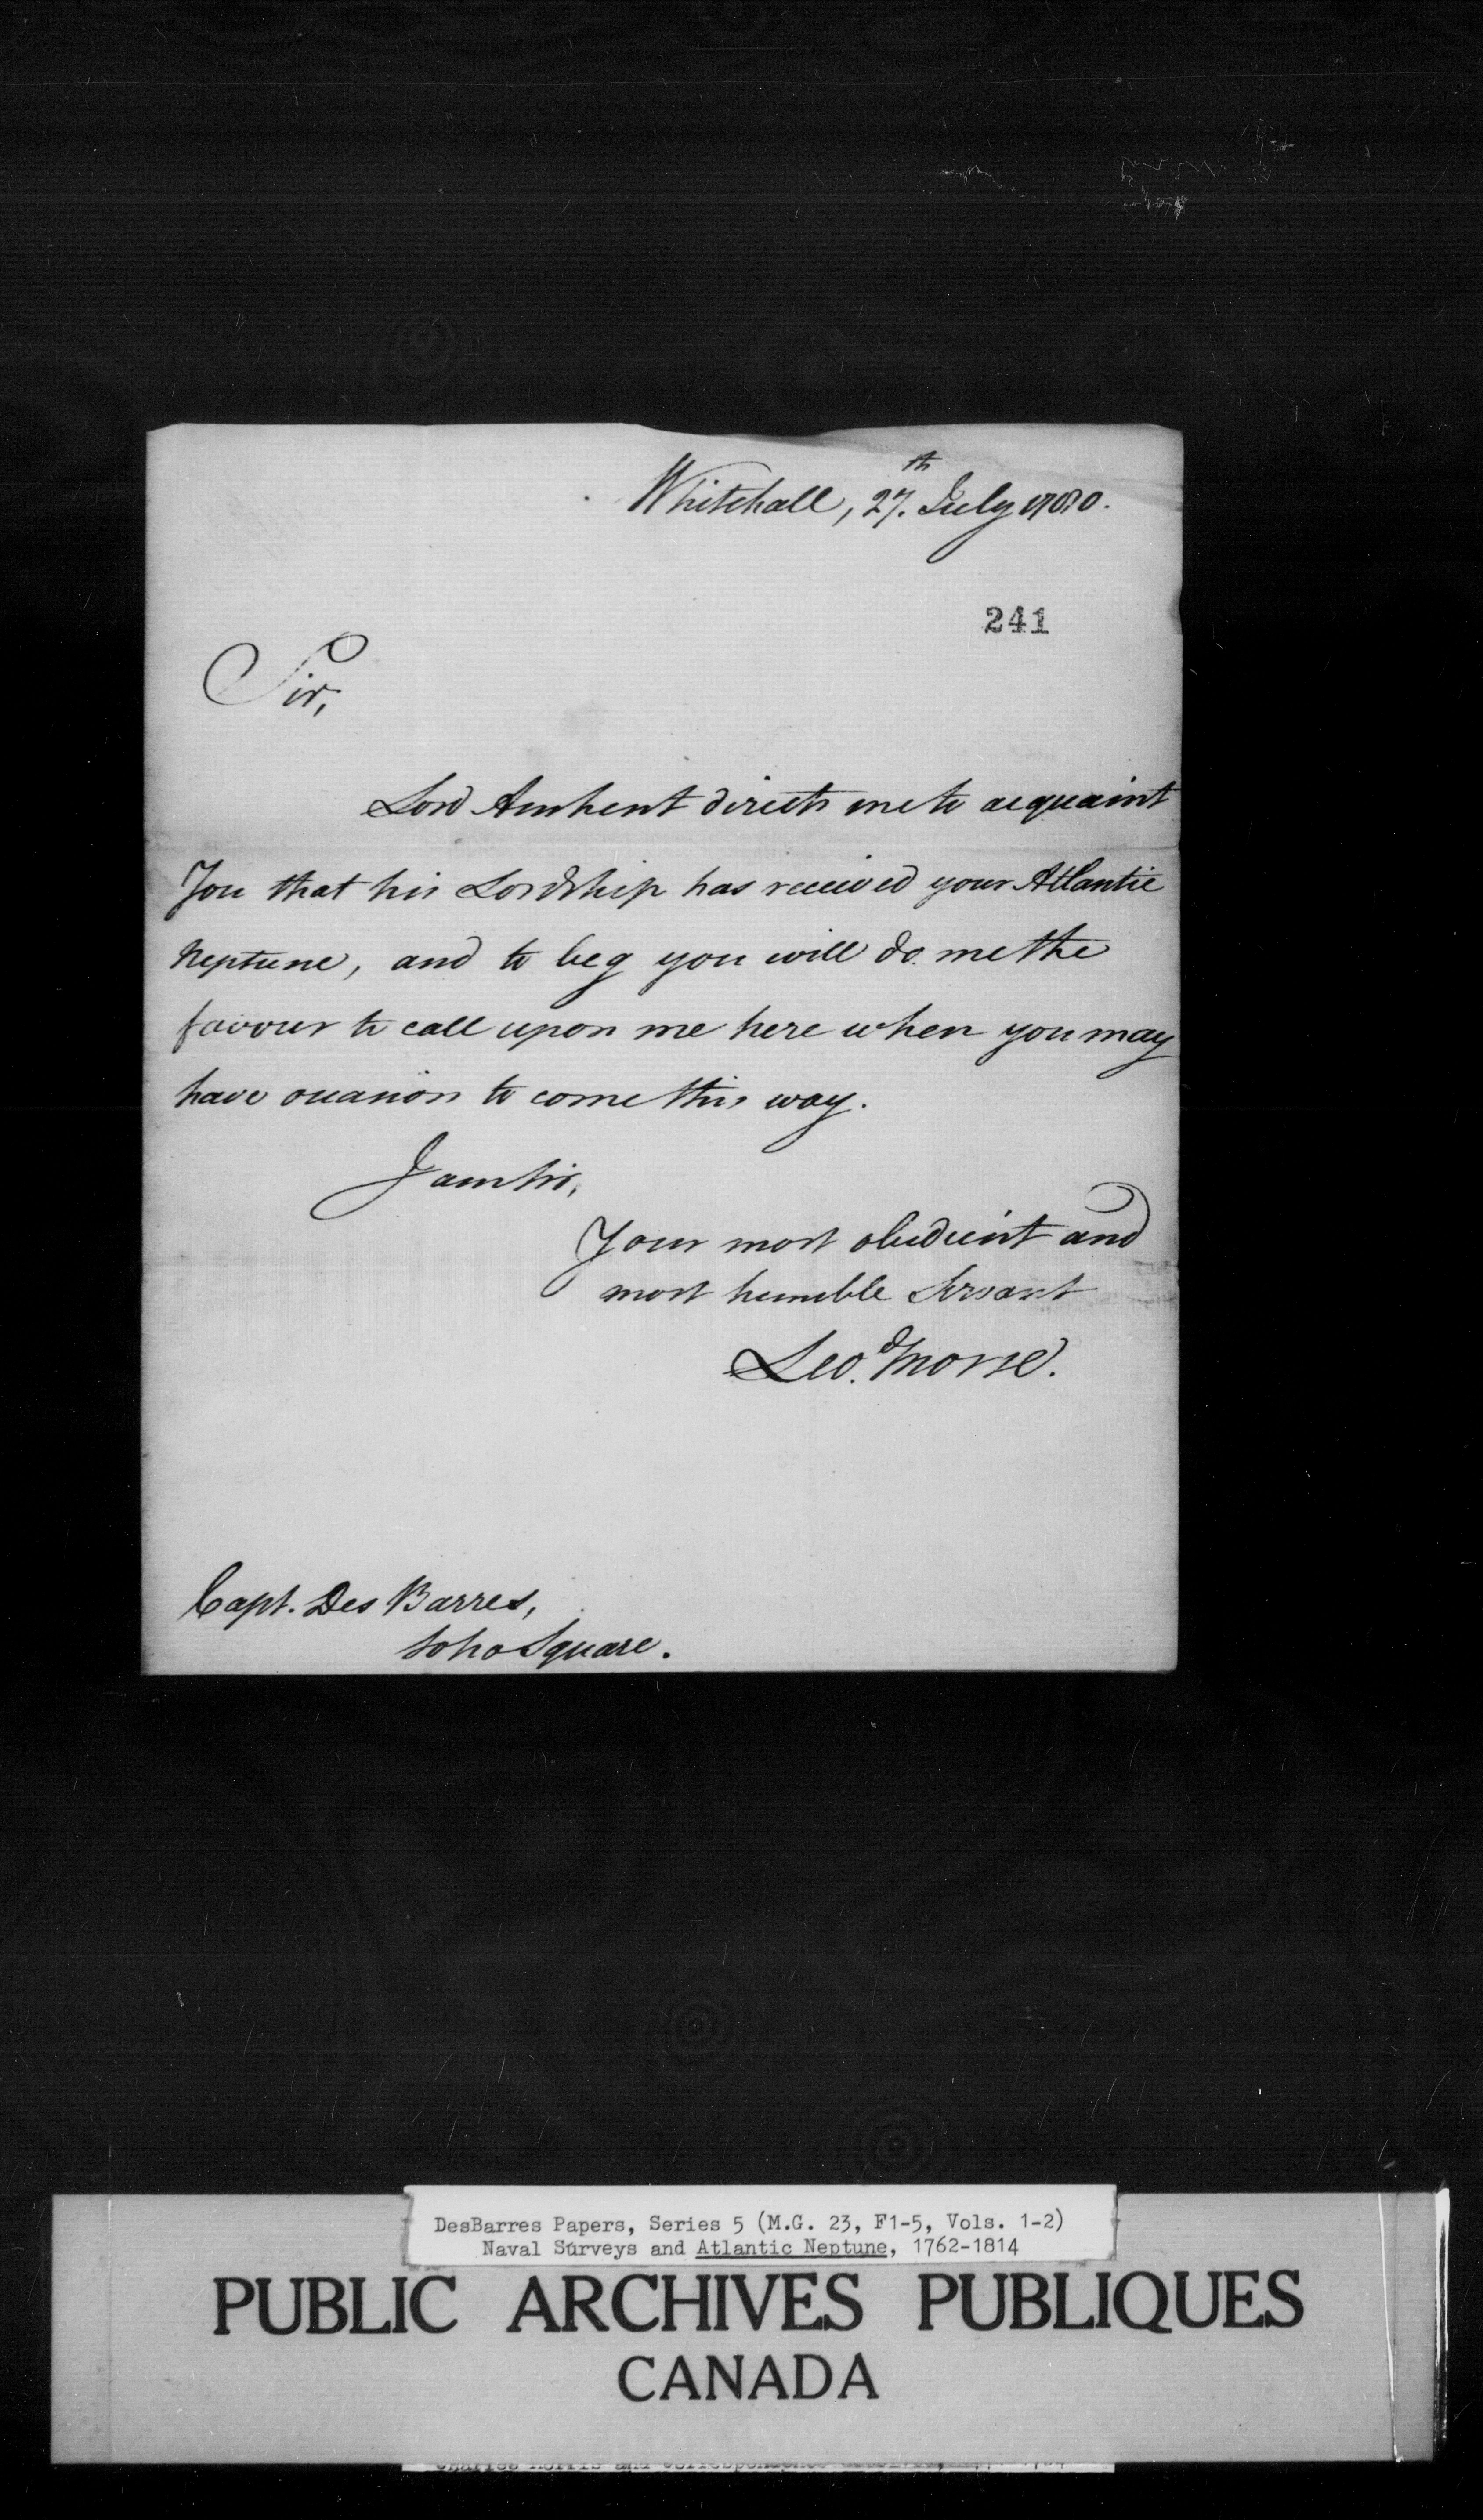 Whitehall, 27.th July 1780.
241
Sir,
Lord Amherst directs me to acquaint
You that his Lordship has received your Atlantic
Neptune, and to beg you will do me the
favour to call upon me here when you may
have occasion to come this way.
I am Sir,
Your most obedient and
most humble Servant
Leo.d Morse.
Capt. Des Barres,
Soho Square.
DesBarres Papers, Series 5 (M.G. 23, F1-5, Vols. 1-2)
Naval Surveys and Atlantic Neptune, 1762-1814
PUBLIC ARCHIVES PUBLIQUES
CANADA